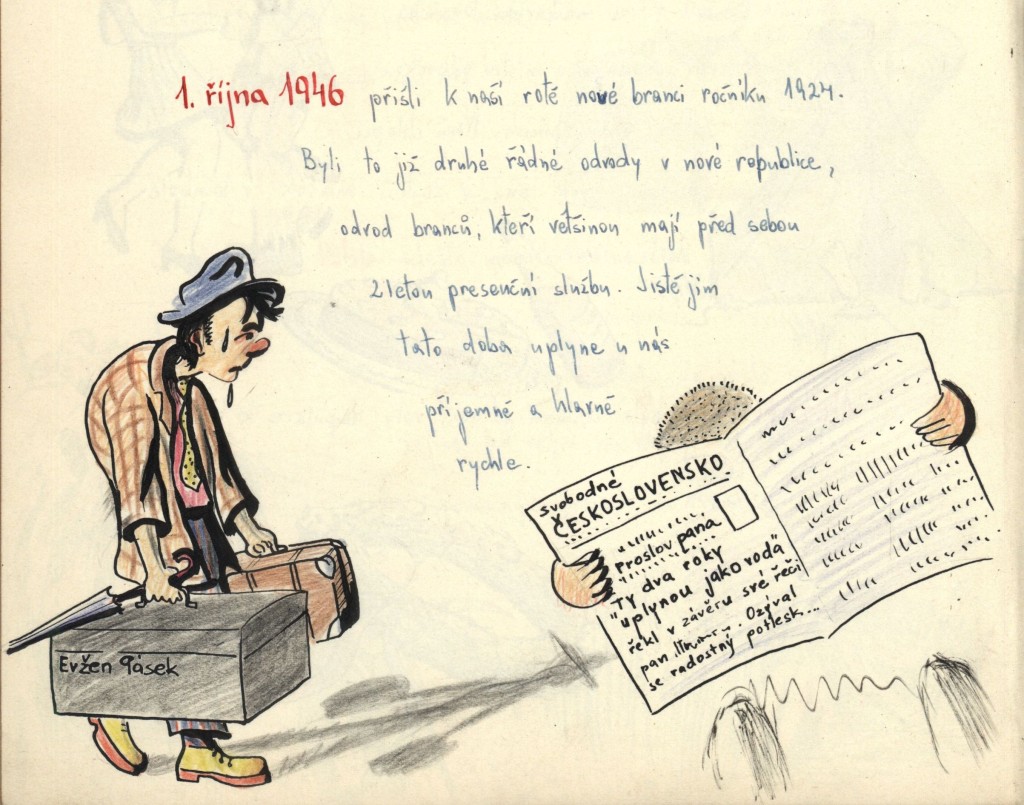 1. října 1946 přišli k naší rotě nové branci ročníku 1924.
Byli to již druhé řádné odvody v nové republice,
odvod branců, kteří většinou mají před sebou
2letou presenční službu. Jistě jim
tato doba uplyne u nás
příjemně a hlavně
rychle.
svobodné
ČESKOSLOVENSKO
Proslov pana
"Ty dva roky
"uplynou jako voda"
řekl v závěru své řeči
pan Ozýval
se radostný potlesk...
Evžen Pásek